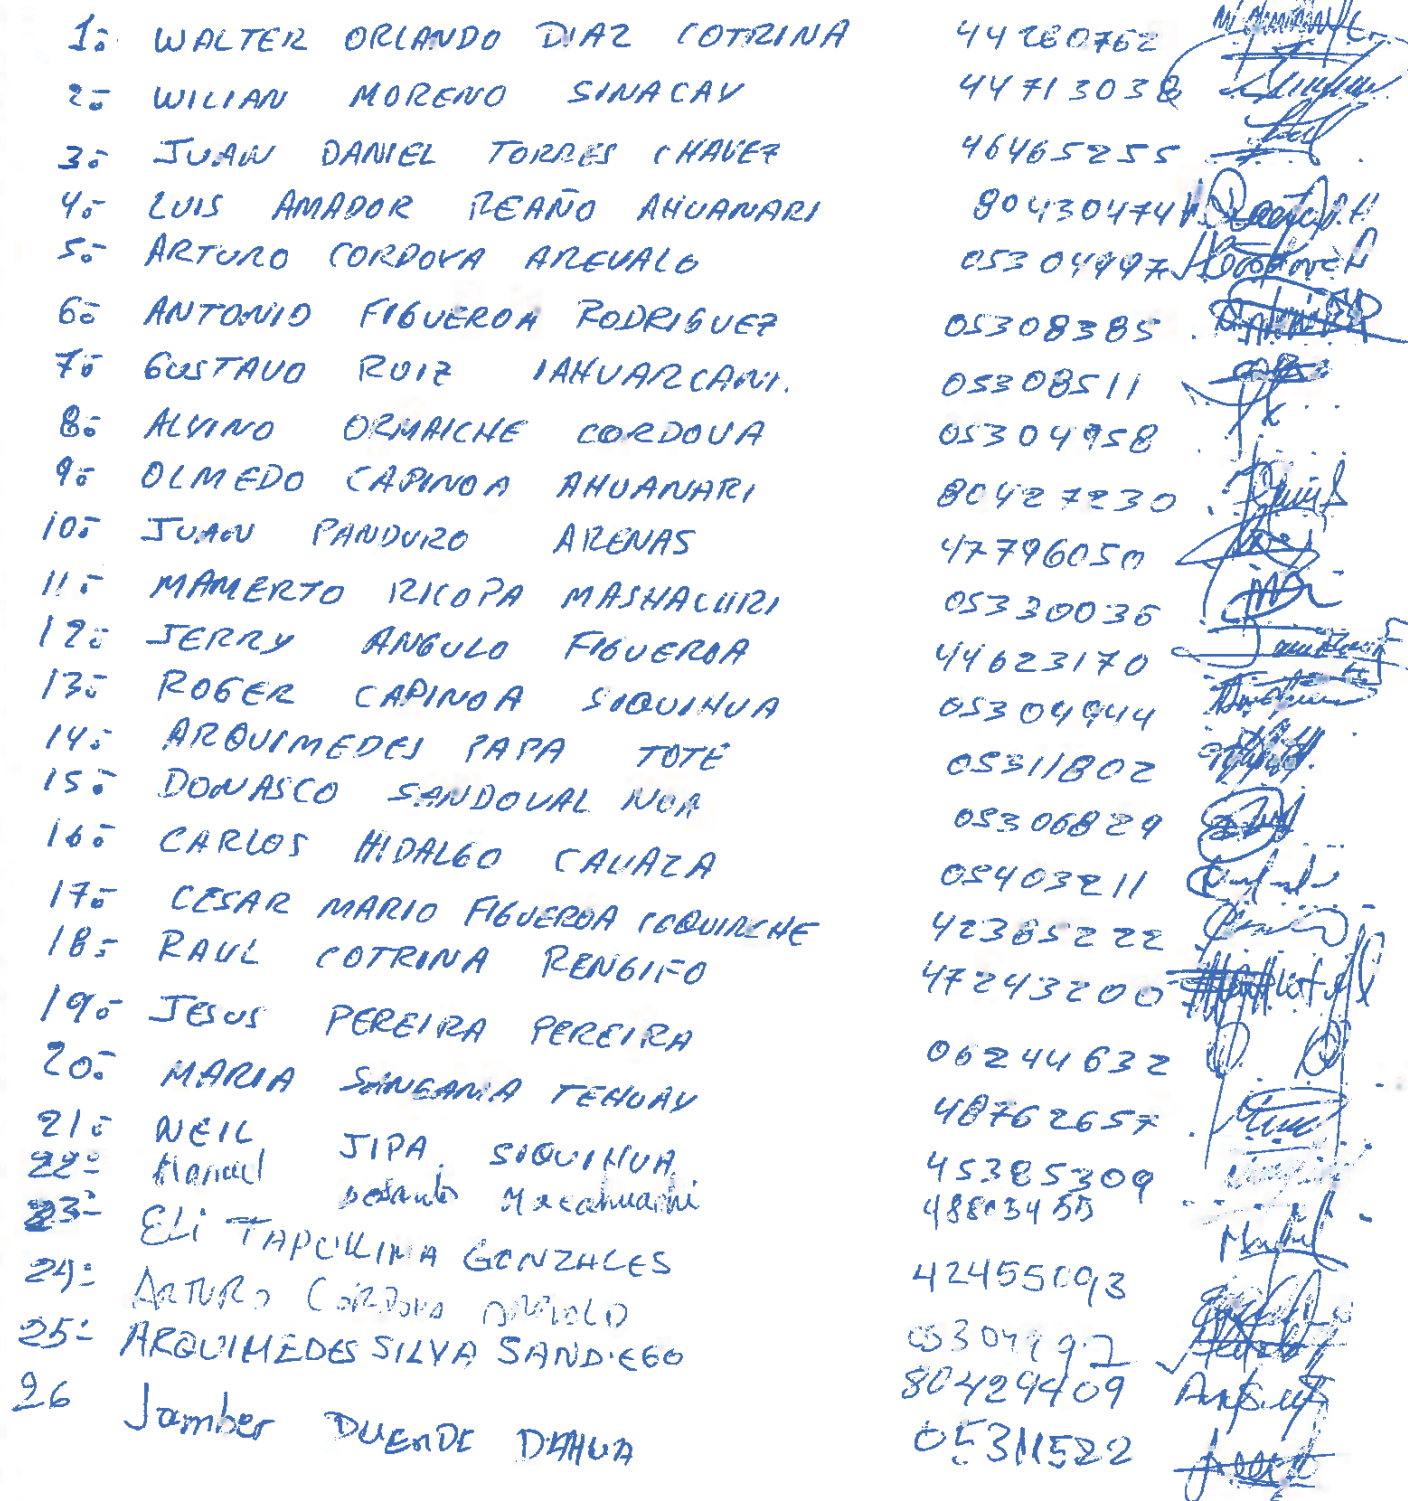 1.- WALTER ORLANDO DIAZ COTRINA 44280762
2.- WILIAN MORENO SINACAY 44713038
3.- JUAN DANIEL TORRES CHAVEZ 46465255
4.- LUIS AMADOR REAÑO AHUANARI 80430474
5.- ARTURO CORDOVA AREVALO 05304997
6.- ANTONIO FIGUEROA RODRIGUEZ 05308385
7.- GUSTAVO RUIZ IAHUARCANI. 05308511
8.- ALVINO ORMAICHE CORDOVA 05304958
9.- OLMEDO CAPINOA AHUANARI 80427230
10.- JUAN PANDURO ARENAS 47796050
11.- MAMERTO RICOPA MASHACURI 05330036
12.- JERRY ANGULO FIGUEROA 44623170
13.- ROGER CAPINOA SIQUIHUA 05304944
14.- ARQUIMEDES PAPA TOTE 05311802
15.- DONASCO SANDOVAL NOA 05306829
16.- CARLOS HIDALGO CAUAZA 05403211
17.- CESAR MARIO FIGUEROA 42385222
18.- RAUL COTRINA RENGIFO 47243200
19.- JESUS PEREIRA PEREIRA 06244632
20.- MARIA SANGAMA TEHUAY 48762657
21.- NEIL JIPA SIQUIHUA 45385309
22.- Manuel Macahuachi
23.- ELI TAPULLIMA GONZALES 42455093
24.- ARTURO CORDOVA
25.- ARQUIMEDES SILVA SANDIEGO 80429409
26 Jamber DUENDE DAHUA 05311522